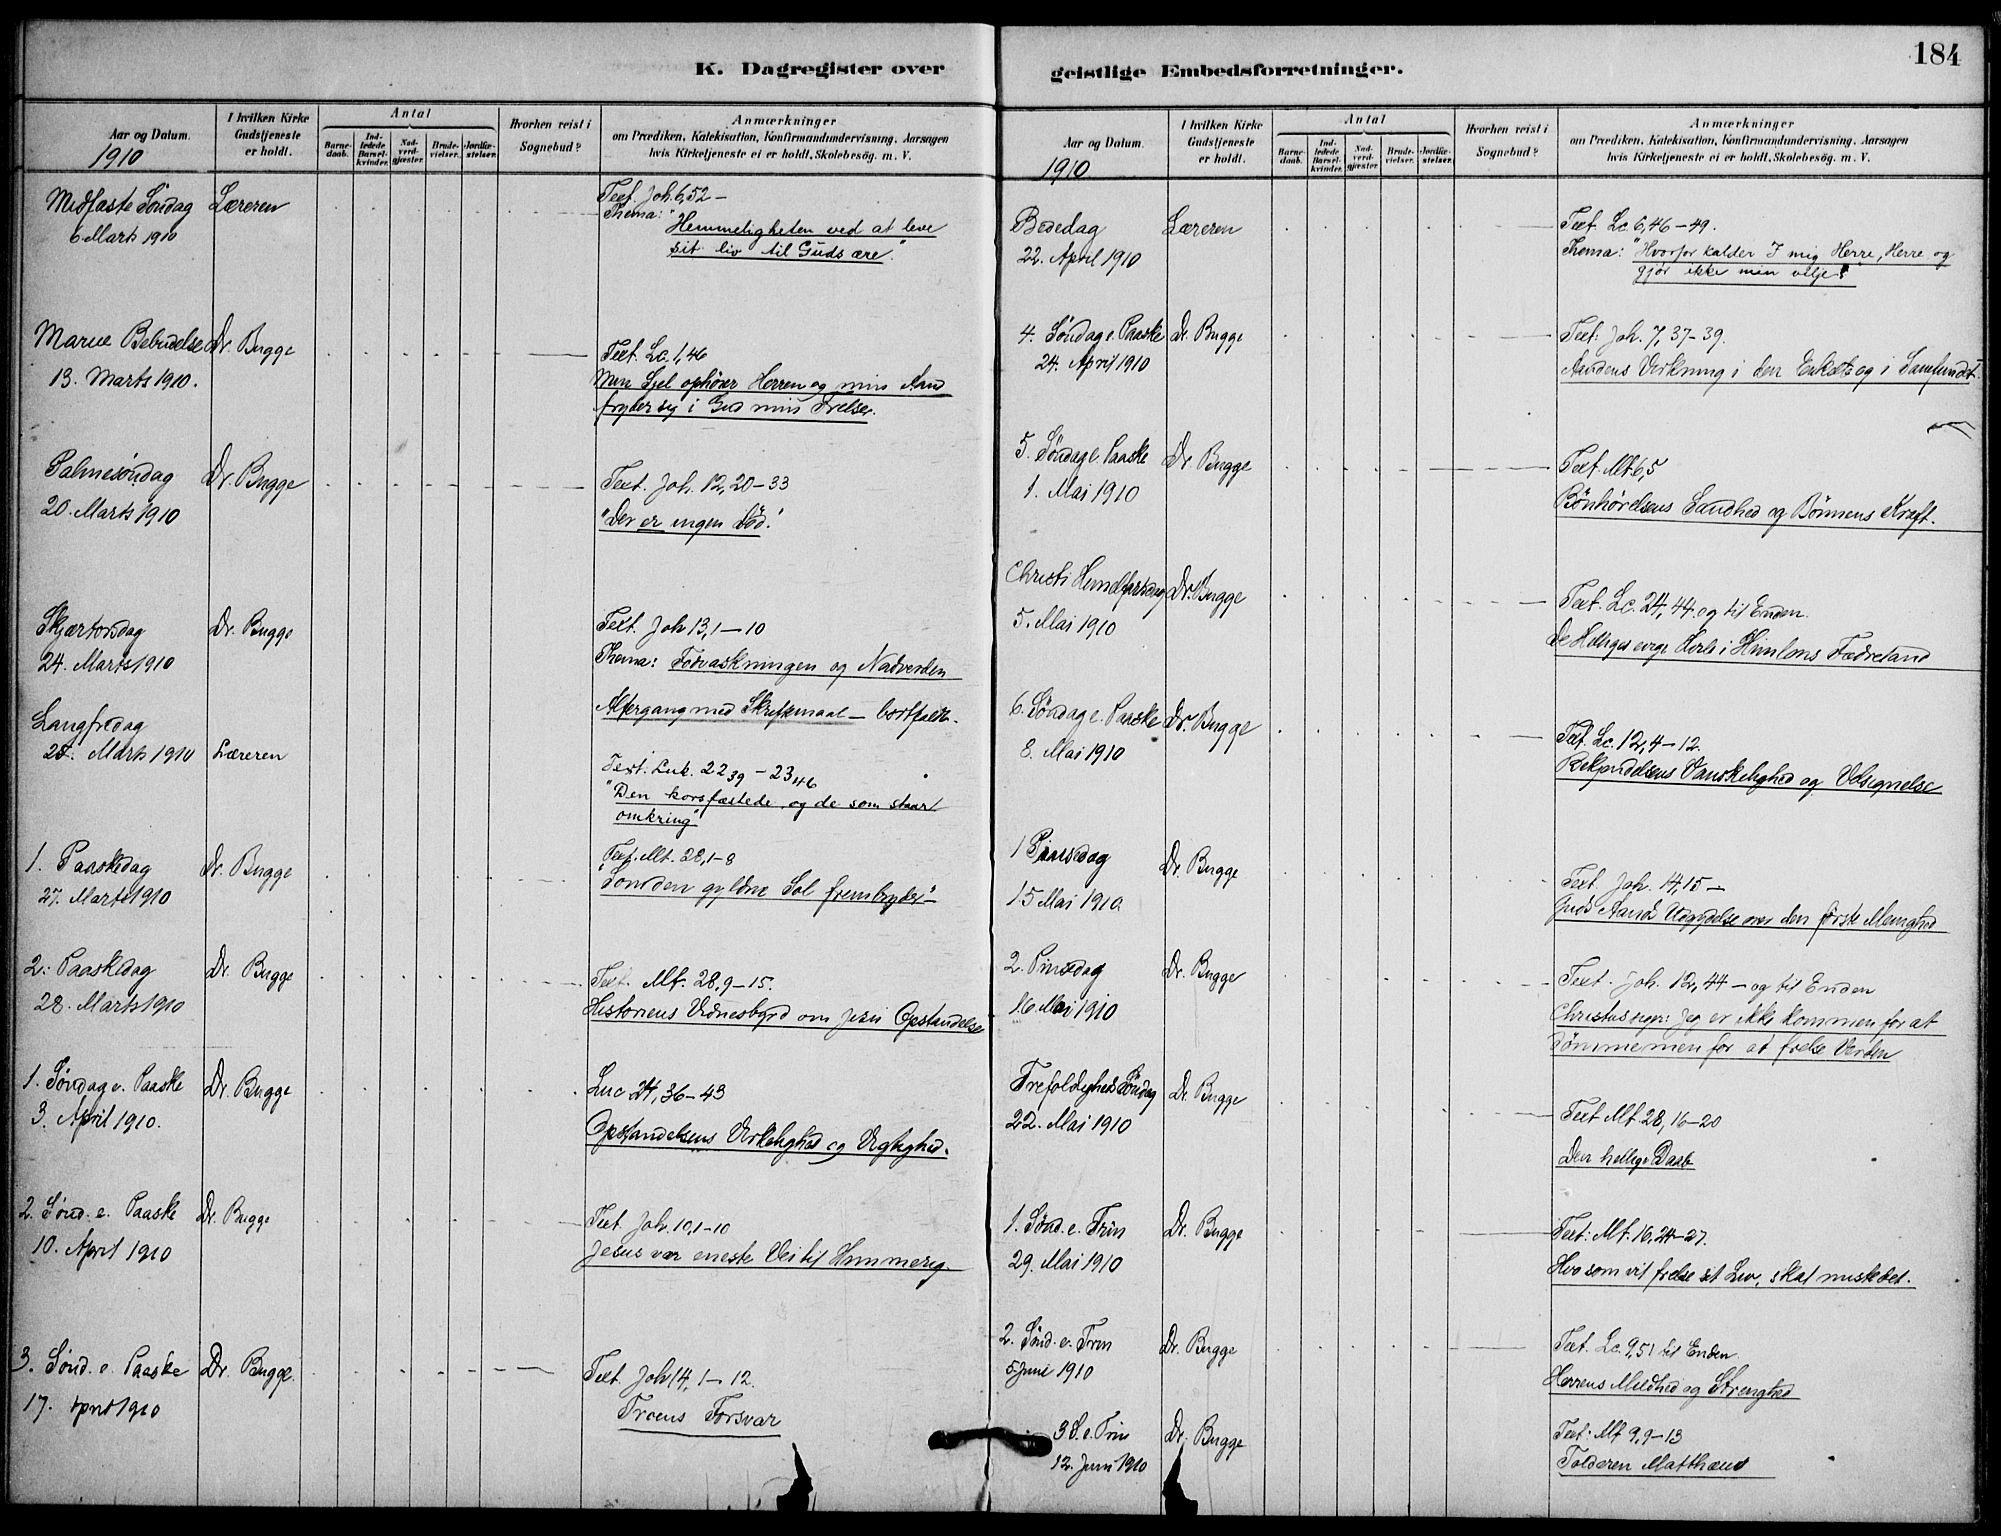 184
K. Dagregister over
Aar og Datum.
1910
I hvilken Kirke Gudstjeneste er holdt.
Antal
Barnedaab.
Indledede Barselkvinder.
Nadverdgjæster.
Brudevielser.
Jordfæstelser.
Hvorhen reist i Sognebud?
Anmærkninger
om Prædiken, Katekisation, Konfirmandundervisning. Aarsagen
hvis Kirketjeneste ei er holdt. Skolebesøg. m. V.
Midfaste Søndag Læreren
6 Marts 1910
Text. Joh. 6,52 –
Thema: "Hemmeligheten ved at leve
sit liv til Guds ære."
Mariæ Bebudelse Dr. Bugge
13. Marts 1910.
Text. Lc. 1,46
Min Sjel ophöier Herren og min Aand
fryder sig i Gud min Frelser.
Palmesöndag Dr. Bugge
20. Marts 1910
Text. Joh. 12,20–33
"Der er ingen Död."
Skjærtorsdag Dr. Bugge
24. Marts 1910
Text. Joh 13,1–10
Thema: Fodvaskningen og Nadverden
Altergang med Skriftemaal – bortfaldt.
Langfredag
25. Marts 1910 Læreren
Text. Luk. 22 39 – 23 46
"Den korsfæstede og de som staar
omkring"
1. Paaskedag Dr. Bugge
27. Marts 1910
Text. Mt. 28,1–8
"Som den gyldne Sol frembryder"
2. Paaskedag Dr. Bugge
28. Marts 1910
Text. Mt. 28,9–15.
Historiens Vidnesbyrd om Jesu Opstandelse
1. Söndag e. Paaske Dr. Bugge
3. April 1910.
Luc 24,36–43
Opstandelsens Virkelighed og Vigtighed.
2. Sönd. e. Paaske Dr. Bugge
10. April 1910
Text. Joh. 10,1–10
Jesus vor eneste Vei til Himmerig
3. Sönd. e. Paaske Dr. Bugge.
17. April 1910
Text. Joh 14, 1–12.
Troens Forsvar
geistlige Embedsforretninger.
Aar og Datum.
1910
I hvilken Kirke Gudstjeneste er holdt.
Antal
Barnedaab.
Indledede Barselkvinder.
Nadverdgjæster.
Brudevielser.
Jordfæstelser.
Hvorhen reist i Sognebud?
Anmærkninger
om Prædiken, Katekisation, Konfirmandundervisning. Aarsagen
hvis Kirketjeneste ei er holdt. Skolebesøg. m. V.
Bededag Læreren
22. April 1910
Text. Lc. 6,46–49.
Thema: "Hvorfor kalder I mig Herre, Herre og
gjör ikke min vilje?"
4. Söndag e. Paaske Dr. Bugge
24. April 1910
Text: Joh. 7,37–39.
Aandens Virkning i den Enkelte og i Samfundet.
5. Söndag e. Paaske Dr. Bugge
1. Mai 1910
Text. Mt 6,5
Bönhörelsens Sandhed og Bönnens Kraft.
Christi Himmelfartsdag Dr. Bugge
5. Mai 1910
Text. Lc. 24,44 og til Enden.
De Helliges evige Arv i Himlens Fædreland
6. Söndag e. Paaske Dr. Bugge
8. Mai 1910
Text. Lc. 12,4–12.
Bekjendelsens Vanskelighed og Velsignelse
1 Pinsedag Dr. Bugge
15 Mai 1910
Text. Joh. 14,15 –
Guds Aands Udgydelse over den förste Menighed
2. Pinsedag Dr. Bugge
16 Mai 1910
Text. Joh. 12,44 – og til Enden
Christus siger: Jeg er ikke kommen for at
dömme men for at frelse Verden
Trefoldigheds Söndag Dr. Bugge
22. Mai 1910
Text Mt. 28,16–20
Den hellige Daab
1. Sönd. e. Trin Dr. Bugge
29. Mai 1910
Text: Mt. 16,24–27.
Hvo som vil frelse sit Liv, skal miste det.
2. Sönd. e. Trin Dr. Bugge
5 Juni 1910
Text. Lc. 9,51 til Enden.
Herrens Mildhed og Strenghed
3 S. e. Trin Dr. Bugge
12. Juni 1910
Text: Mt 9,9–13
Tolderen Matthæus